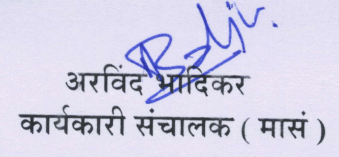 अरविंद भादिकर
कार्यकारी संचालक ( मासं )